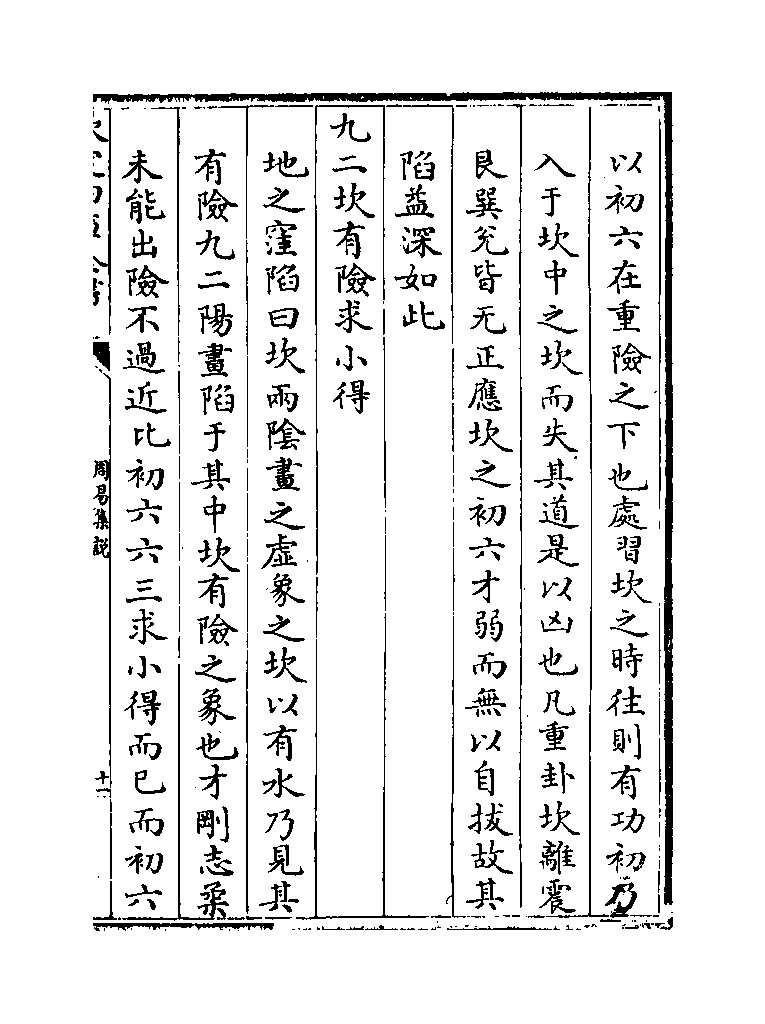 以初六在重險之下也處習坎之時往則有功初乃
入于坎中之坎而失其道是以凶也凡重卦坎離震
艮巽兊皆无正應坎之初六才弱而無以自拔故其
陷益深如此
九二坎有險求小得
地之窪陷曰坎兩陰畫之虛象之坎以有水乃見其
有險九二陽畫陷于其中坎有險之象也才剛志柔
未能出險不過近比初六六三求小得而已而初六
周易集說